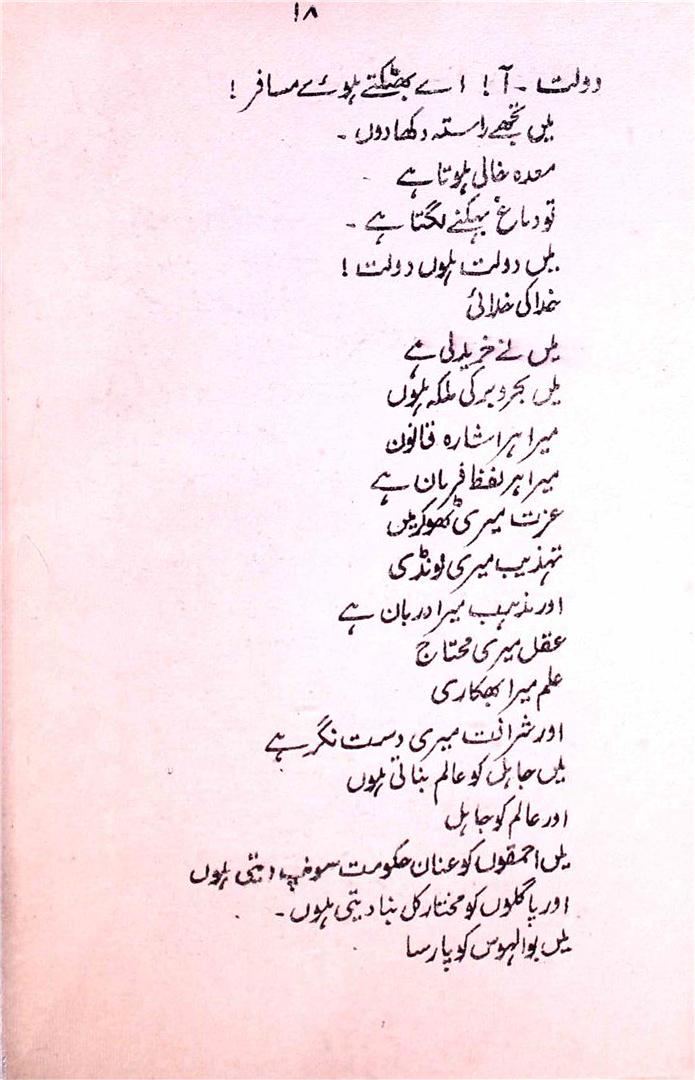 ۱۸
دولت ۔ آ! اے بھٹکتے ہوئے مسافر!
میں تجھے راستہ دکھا دوں ۔
معدہ خالی ہوتا ہے
تو دماغ بہکنے لگتا ہے ۔
میں دولت ہوں دولت!
خدا کی خدائی
میں نے خرید لی ہے
میں بحر و بر کی ملکہ ہوں
میرا ہر اشارہ قانون
میرا ہر لفظ فرمان ہے
عزت میری ٹھوکر میں
تہذیب میری لونڈی
اور مذہب میرا دربان ہے
عقل میری محتاج
علم میرا بھکاری
اور شرافت میری دست نگر ہے
میں جاہل کو عالم بناتی ہوں
اور عالم کو جاہل
میں احمقوں کو عنان حکومت سونپ دیتی ہوں
اور پاگلوں کو مختار کل بنا دیتی ہوں ۔
میں بوالہوس کو پارسا